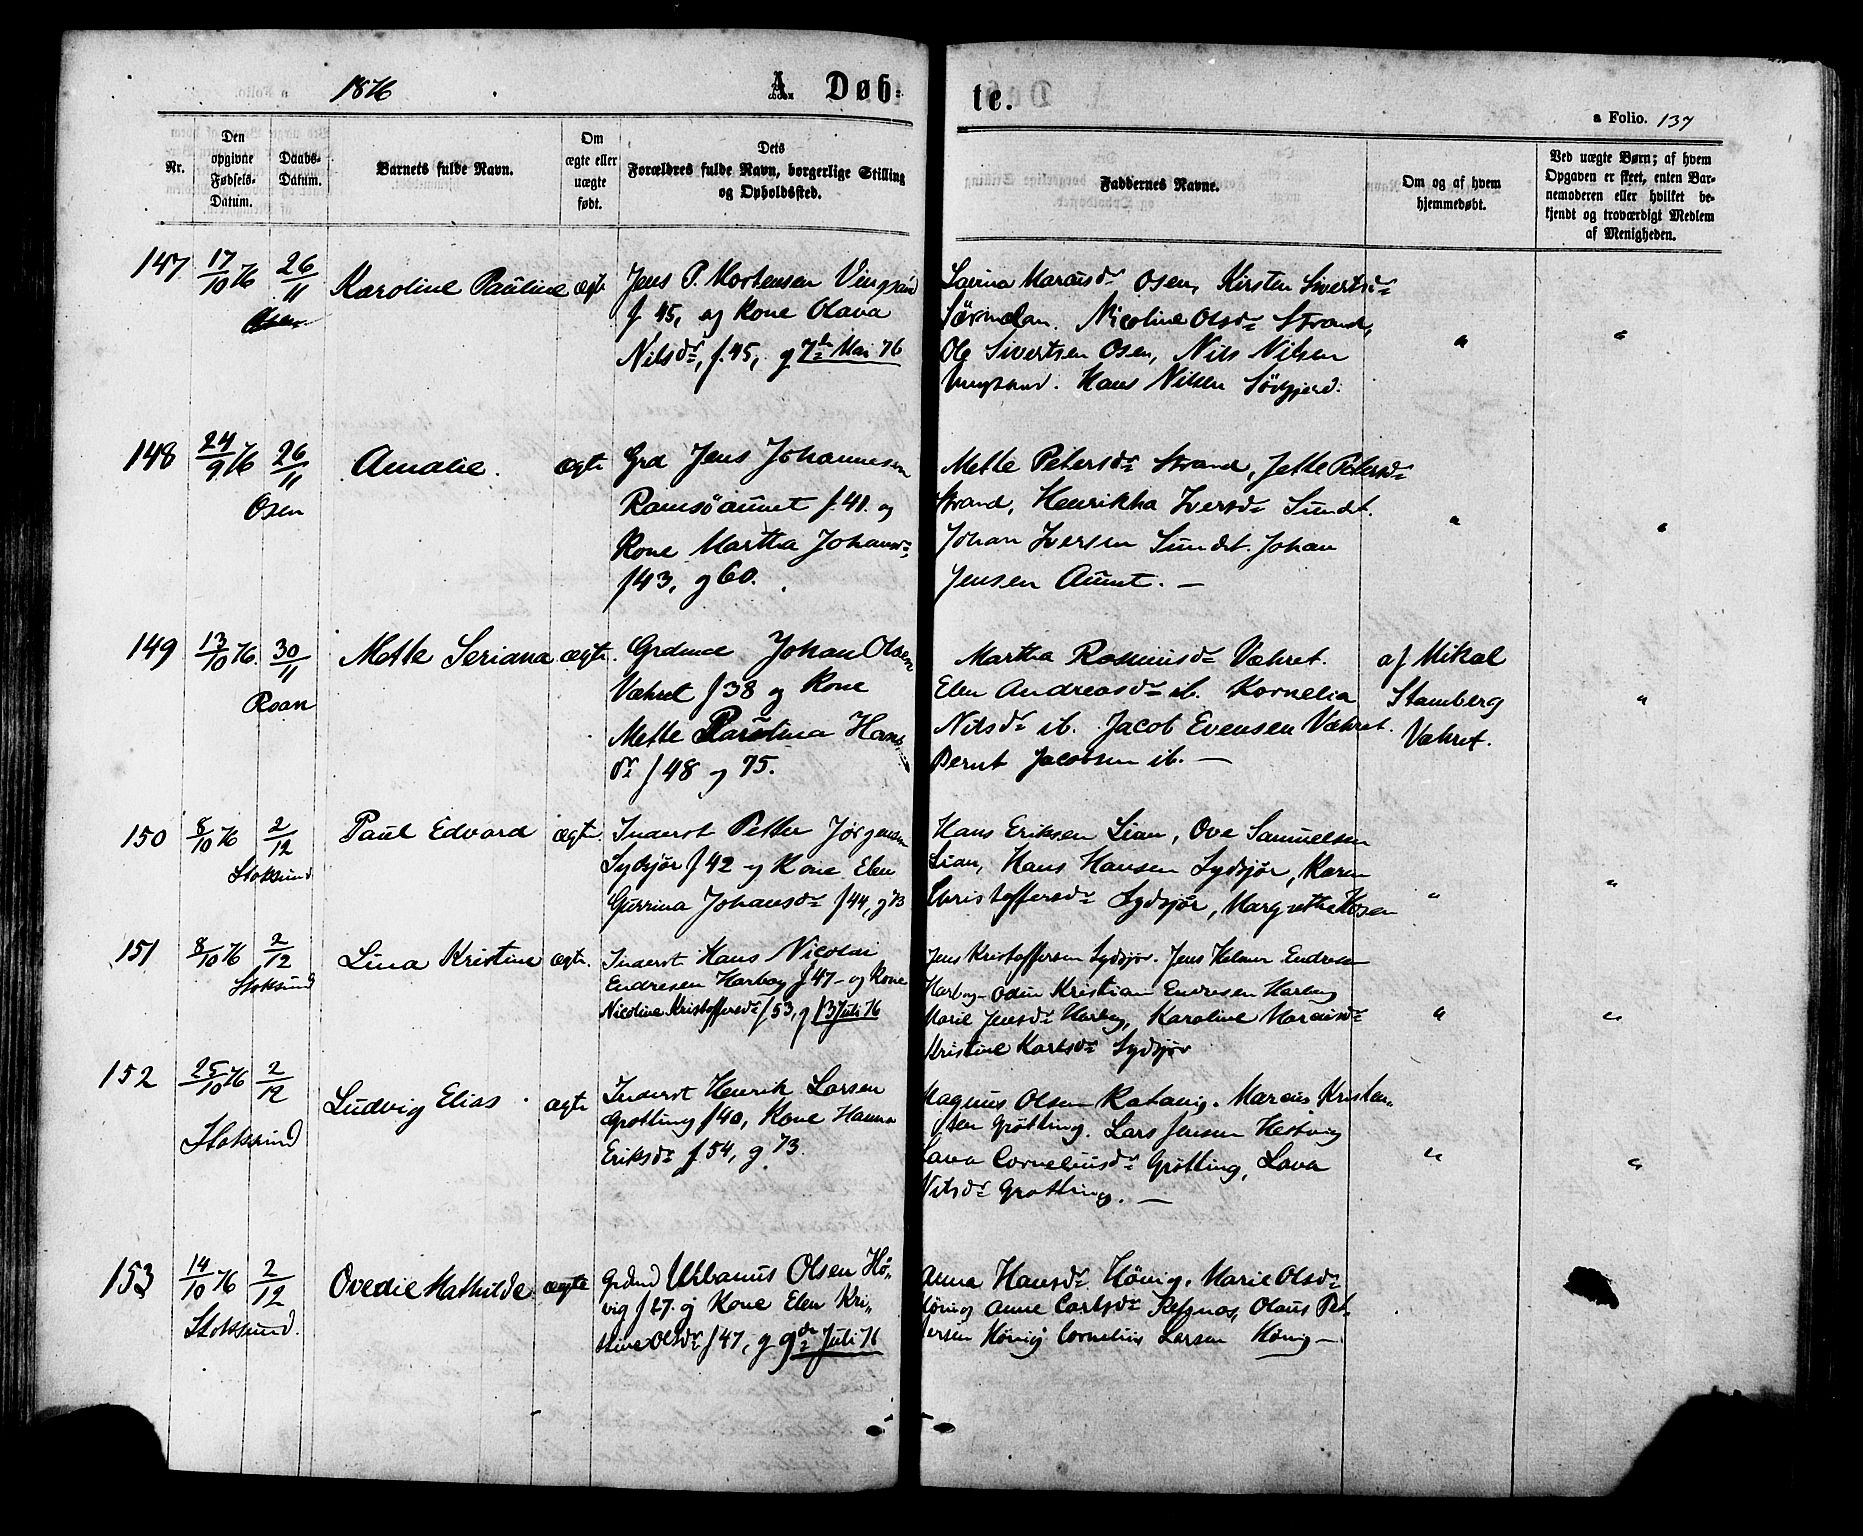 1876
A Døb-
te.
a Folio. 137
Nr.
Den opgivne Fødsels-Datum.
Daabs-Datum.
Barnets fulde Navn.
Om ægte eller uægte født.
Dets Forældres fulde Navn, borgerlige Stilling og Opholdssted.
Faddernes Navne.
Om og af hvem hjemmedøbt.
Ved uægte Børn; af hvem Opgaven er skeet, enten Barnemoderen eller hvilket bekjendt og troværdigt Medlem af Menigheden.
147 17/10 76 26/11 Osen
Karoline Pauline ægte
Jens P. Mortensen Vingsand
f 45, og Kone Olava
Nilsdr, f. 45, g 7de Mai 76
Marcusdr Osen, Kirsten Sivertsdr
Sørmelan. Nicoline Olsdr Strand,
Ole Sivertsen Osen, Nils Nilsen
Vingsand. Hans Nilsen
" "
148 24/9 76 26/11 Osen
Amalie. ægte
Grd Jens Johannesen
Ramsøaunet f. 41. og
Kone Martha Johansdr
f 43, g 60.
Mette Petersdr Strand, Jette Petersdr
Strand, Henrikha Iversdr Sundet.
Johan Iversen Sundet. Johan
Jensen Aunet. —
" "
149 13/10 76. 30/11 Roan
Mette Seriana ægte.
Grdmd Johan Olsen
Væhret f 38 og Kone
Mette Karolina Hans-
dr f 48 g 75.
Martha Rasmusdr Væhret.
Elen Andreasdr ib. Kornelia
Nilsdr ib. Jacob Evensen Væhret.
Bernt Jacobsen ib. —
af Mikal
Stamberg
Væhret.
"
150 8/10 76 2/12 Stoksund
Paul Edvard ægte.
Inderst Petter Jørgensen
Sydsjør f 42 og Kone Elen
Gurrina Johansdr f 44, g 73
Hans Eriksen Lian, Ove Samuelsen
Lian, Hans Hansen Sydsjør, Karen
Christoffersdr Sydsjør, Margrethe
" "
151 8/10 76 2/12 Stoksund
Lina Kristine ægte.
Inderst Hans Nicolai
Endresen Harbog f 47 – og Kone
Nicoline Kristoffersdr f 53, g 13 Juli 76
Jens Kristoffersen Sydsjør. Jens Helmer Endresen
Harbog – Odin Kristian Endresen Harbog
Marie Jensdr Harbog, Karoline Marcusdr
Kristine Karlsdr Sydsjør
" "
152 25/10 76 2/12 Stoksund
Ludvig Elias. ægte
Inderst Henrik Larsen
Grøtting f 40, Kone Hanna
Eriksdr f. 54, g 73.
Magnus Olsen Ratavig. Marcus Kristen-
sen Grøtting. Lars Jensen Hestvig
Lava Corneliusdr Grøtting, Lava
Nilsdr Grøtting. —
" "
153 14/10 76 2/12 Stoksund.
Ovedie Mathilde ægte
Grdmd Urbanus Olsen Hø-
vig f 27. og Kone Elen Kri-
stine Olsdr f 47, g 9de Juli 76
Anna Hansdr Hönig. Marie Olsdr
Hönig Anne Carlsdr Refsnæs, Olaus Pet-
tersen Hönig Cornelius Larsen Hönig —